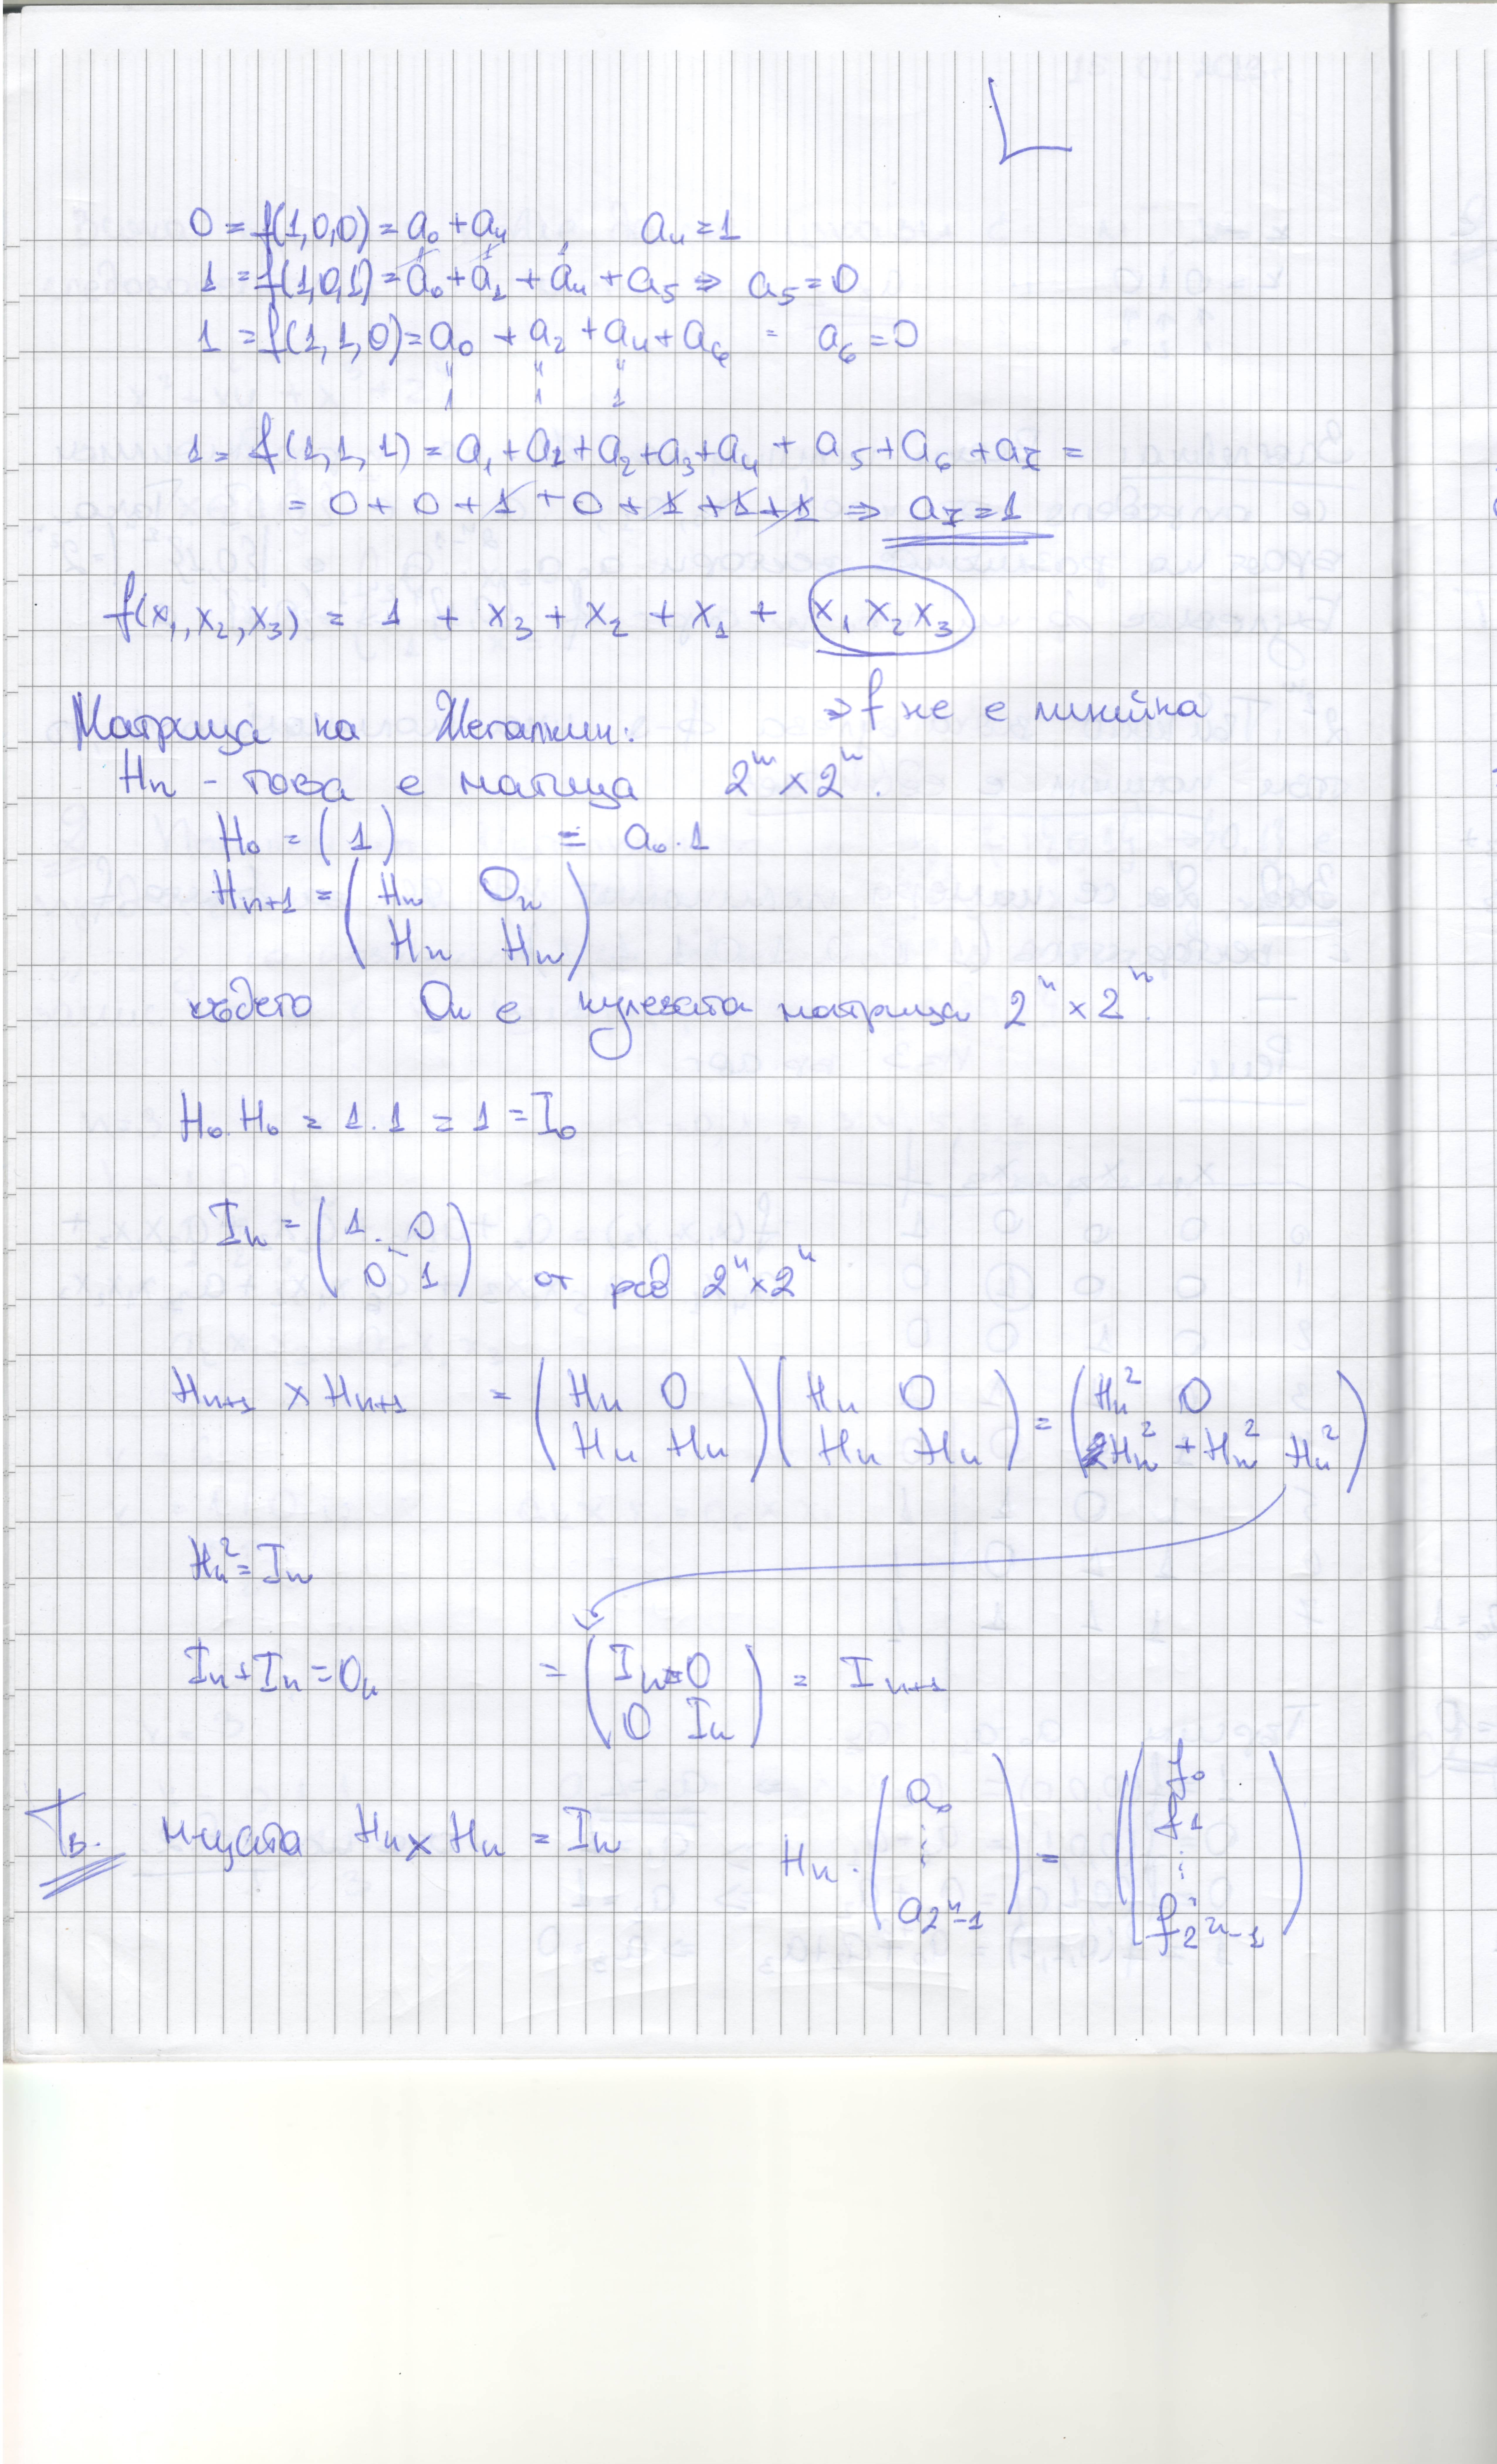 L
0 = f(1,0,0) = a₀ + a₄ , a₄ = 1
1 = f(1,0,1) = a₀ + a₁ + a₄ + a₅ ⇒ a₅ = 0
1 = f(1,1,0) = a₀ + a₂ + a₄ + a₆ = a₆ = 0
" " "
1 1 1
1 = f(1,1,1) = a₁ + a₁ + a₂ + a₃ + a₄ + a₅ + a₆ + a₇ =
= 0 + 0 + 1 + 0 + 1 + 1 + 1 ⇒ a₇ = 1
f(x₁,x₂,x₃) = 1 + x₃ + x₂ + x₁ + x₁x₂x₃
⇒ f не е линейна
Матрица на Жегалкин:
Hn - това е матица 2ⁿ × 2ⁿ.
H₀ = (1) = a₀.1
Hn+1 = ( Hn On
Hn Hn )
където On е нулевата матрица 2ⁿ × 2ⁿ.
H₀.H₀ = 1.1 = 1 = I₀
In = ( 1 . 0
0 1 ) от ред 2ⁿ×2ⁿ
Hn+1 × Hn+1 = ( Hn 0 ) ( Hn 0 ) = ( Hn² 0
Hn Hn Hn Hn Hn² + Hn² Hn² )
Hn² = In
In + In = On = ( In 0 ) = In+1
0 In
Тв. м-цата Hn × Hn = In Hn . ( a₀ ⋮ a2ⁿ-1 ) = ( f₀ f₁ ⋮ f2ⁿ-1 )